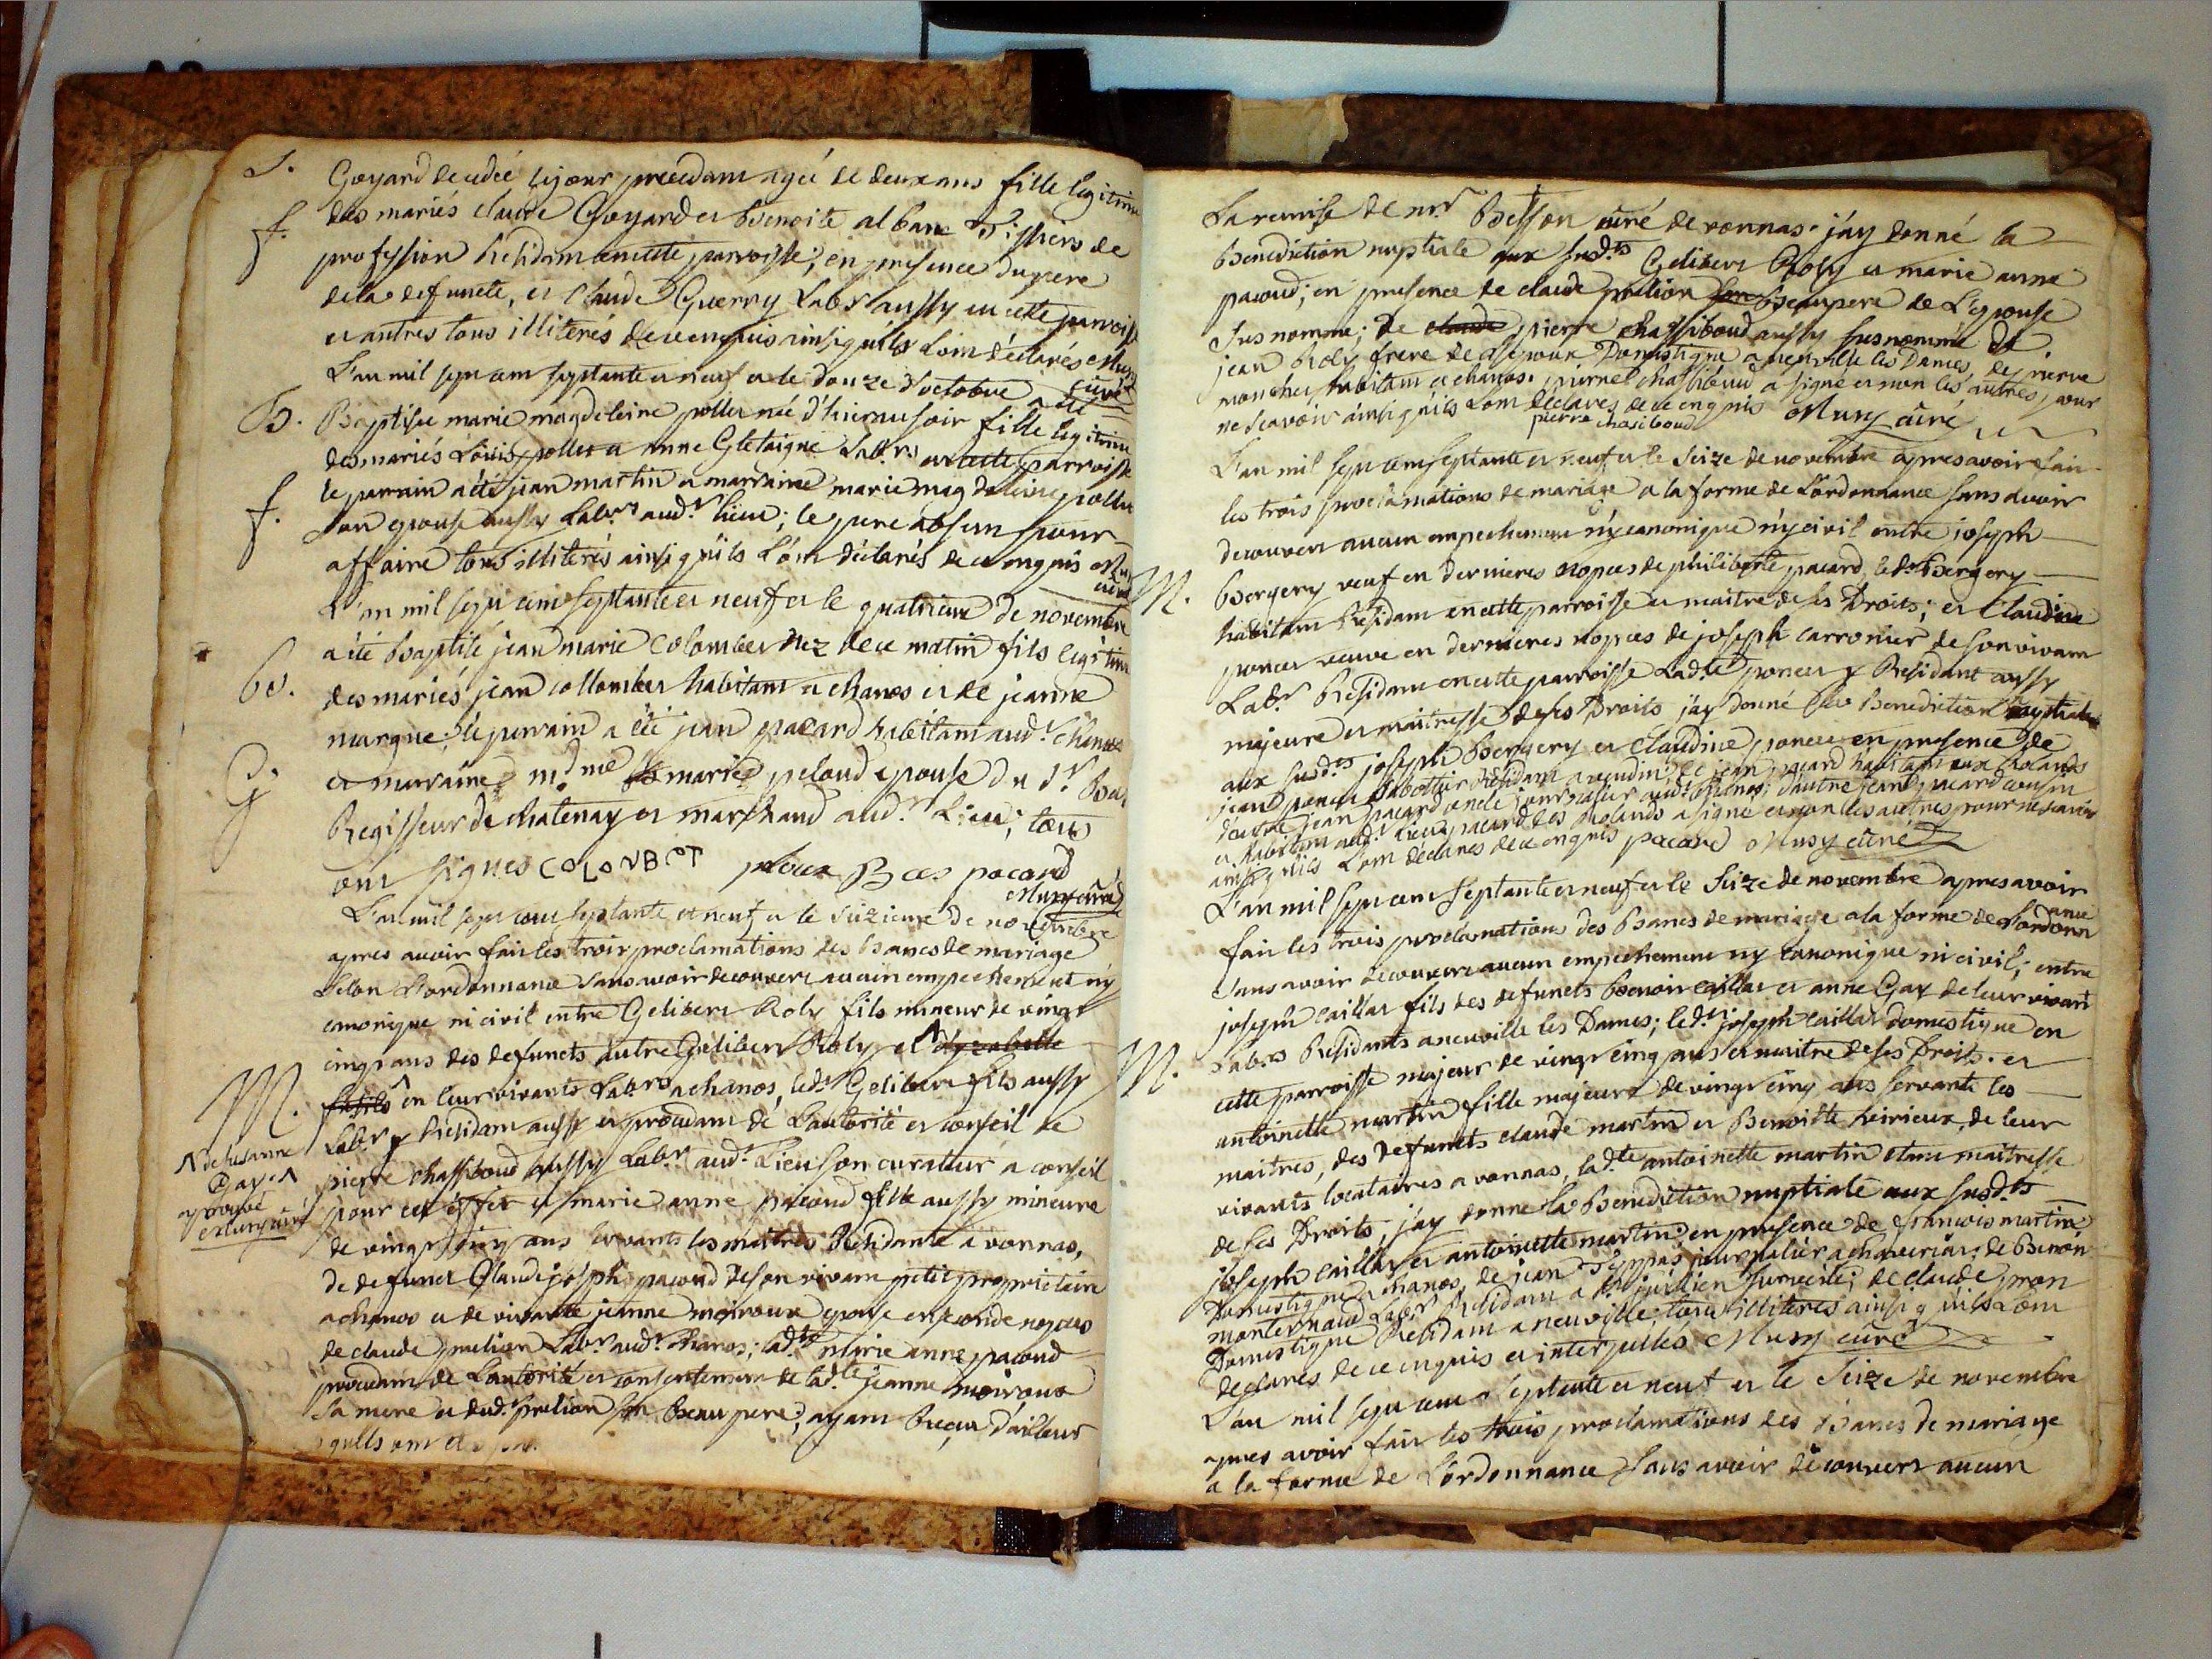 S. Goyard decedée le jour precedant agée de deux ans fille legitime
f. des mariés claude Goyard et Benoite alban Tissiers de
profession Residant en cette parroisse, en presence du pere
de la defuncte, et Claude Guerry Labr aussy en cette parroisse
et autres tous illiterés de ce enquis ainsi quils L'ont declarés Musy
curé
L'an mil sept cent septante et neuf et le douze d'octobre a été
B. Baptisée marie magdeleine pollet née d'hier au soir fille legitime
des mariés Loüis pollet et anne Gletaigne Labrs en cette parroisse
le parrain a été jean martin et marraine marie magdeleine pollet
f. son epouse aussy Labrs audt lieu; le pere absent pour
affaire tous illiterés ainsi quils L'ont declarés de ce enquis Musy
curé
L'an mil sept cent septante et neuf et le quatrieme de novembre
a été baptisé jean marie Colombet nez de ce matin fils legitime
B. des mariés jean collombet habitant a chanos et de jeanne
margue; le parrain a été jean pacard habitant audt chanos
G et marraine marie peloud epouse du Sr Bas
Regisseur de chatenay et marchand audt Lieu; tous
ont signés COLONBET peloux Bas pacard
Musy curé
L'an mil sept cent septante et neuf et le seizieme de novembre
apres avoir fait les trois proclamations des bancs de mariage
selon L'ordonnance sans avoir decouvert aucun empechement ny
canonique ni civil entre Gelibert Roly fils mineur de vingt
cinq ans des defuncts autre Gelibert Roly et d'yzabelle
M. en leur vivants Labrs a chanos, ledt Gelibert fils aussy
Labr y Residant aussy et procedant de L'autorité et conseil de
de susanne
Gay
aprouvé
Musy curé
pierre chassiboud aussy Labr audt Lieu son curateur a conseil
pour cet effet et marie anne pacoud fille aussy mineure
de vingt cinq ans servante les maitres Residante a vonnas,
de defunct Claude joseph pacoud de son vivant petit proprietaire
a chanos et de vivante jeanne moiroux epouse en seconde nopces
de claude prelion Labr audt chanos; ladte marie anne pacoud
procedant de L'autorité et consentement de ladte jeanne moiroux
sa mere et dudt prelion son beau pere; ayant Reçu d'ailleur
La remise de mr Besson curé de vonnas. j'ay donné la
Benediction nuptiale aux susdts Gelibert Roly et marie anne
pacoud; en presence de claude prelion son beaupere de L'epouse
susnommé; de claude pierre chassiboud aussy susnommé de
jean Roly frere de L'epoux Domestique a neuville les Dames, de pierre
moncher habitant a chanos. pierre chassiboud a signé et non les autres, pour
ne scavoir ainsi quils L'ont declarés de ce enquis Musy curé
pierre chasiboud
L'an mil sept cent septante et neuf et le Seize de novembre apres avoir fait
les trois proclamations de mariage a la forme de L'ordonnance sans avoir
decouvert aucun empechement ny canonique ny civil entre joseph
M. Bergery veuf en dernieres nopces de philiberte pacard, ledt Bergery
habitant Residant en cette parroisse et maitre de ses Droits; et Claudine
poncet veuve en dernieres nopces de joseph carronier de son vivant
Labr Residant en cette parroisse Ladte poncet y Residant aussy
majeure et maitresse de ses Droits j'ay donné La Benediction nuptiale
aux susdts joseph Bergery et Claudine poncet en presence de
jean poncet Sabottier Residant a vendin; de jean pacard habitant aux Rolands
d'autre jean pacard oncle journalier audt chanos; d'autre jean pacard cousin
et habitant audt Lieu; pacard des Rolands a signé et non les autres pour ne scavoir
ainsi quils L'ont declarés de ce enquis pacard Musy curé
L'an mil sept cent septante et neuf et le Seize de novembre apres avoir
fait les trois proclamations des Bancs de mariage a la forme de L'ordonnance
sans avoir decouvert aucun empechement ny canonique ni civil; entre
joseph caillat fils des defuncts benoit caillat et anne Gay de leur vivant
M. Labrs Residants a neuville les Dames; ledt joseph caillat domestique en
cette parroisse majeur de vingt cinq ans et maitre de ses Droits. et
antoinette martin fille majeure de vingt cinq ans servante les
maitres, des defuncts claude martin et Benoitte heirieux, de leur
vivants locataires a vonnas, ladte antoinette martin etant maitresse
de ses Droits, j'ay donné la Benediction nuptiale aux susdts
joseph caillat et antoinette martin en presence de francois martin
Domestique a chanos, de jean Typpas journalier a chaveriat; de Benoit
monternaud Labr Residant a St julien sur veile; de claude mon
Domestique Residant a neuville; tous illiterés ainsi quils L'ont
declarés de ce enquis et interpellés Musy curé
L'an mil sept cent septante et neuf et le Seize de novembre
apres avoir fait les trois proclamations des Bancs de mariage
a la forme de L'ordonnance sans avoir decouvert aucun